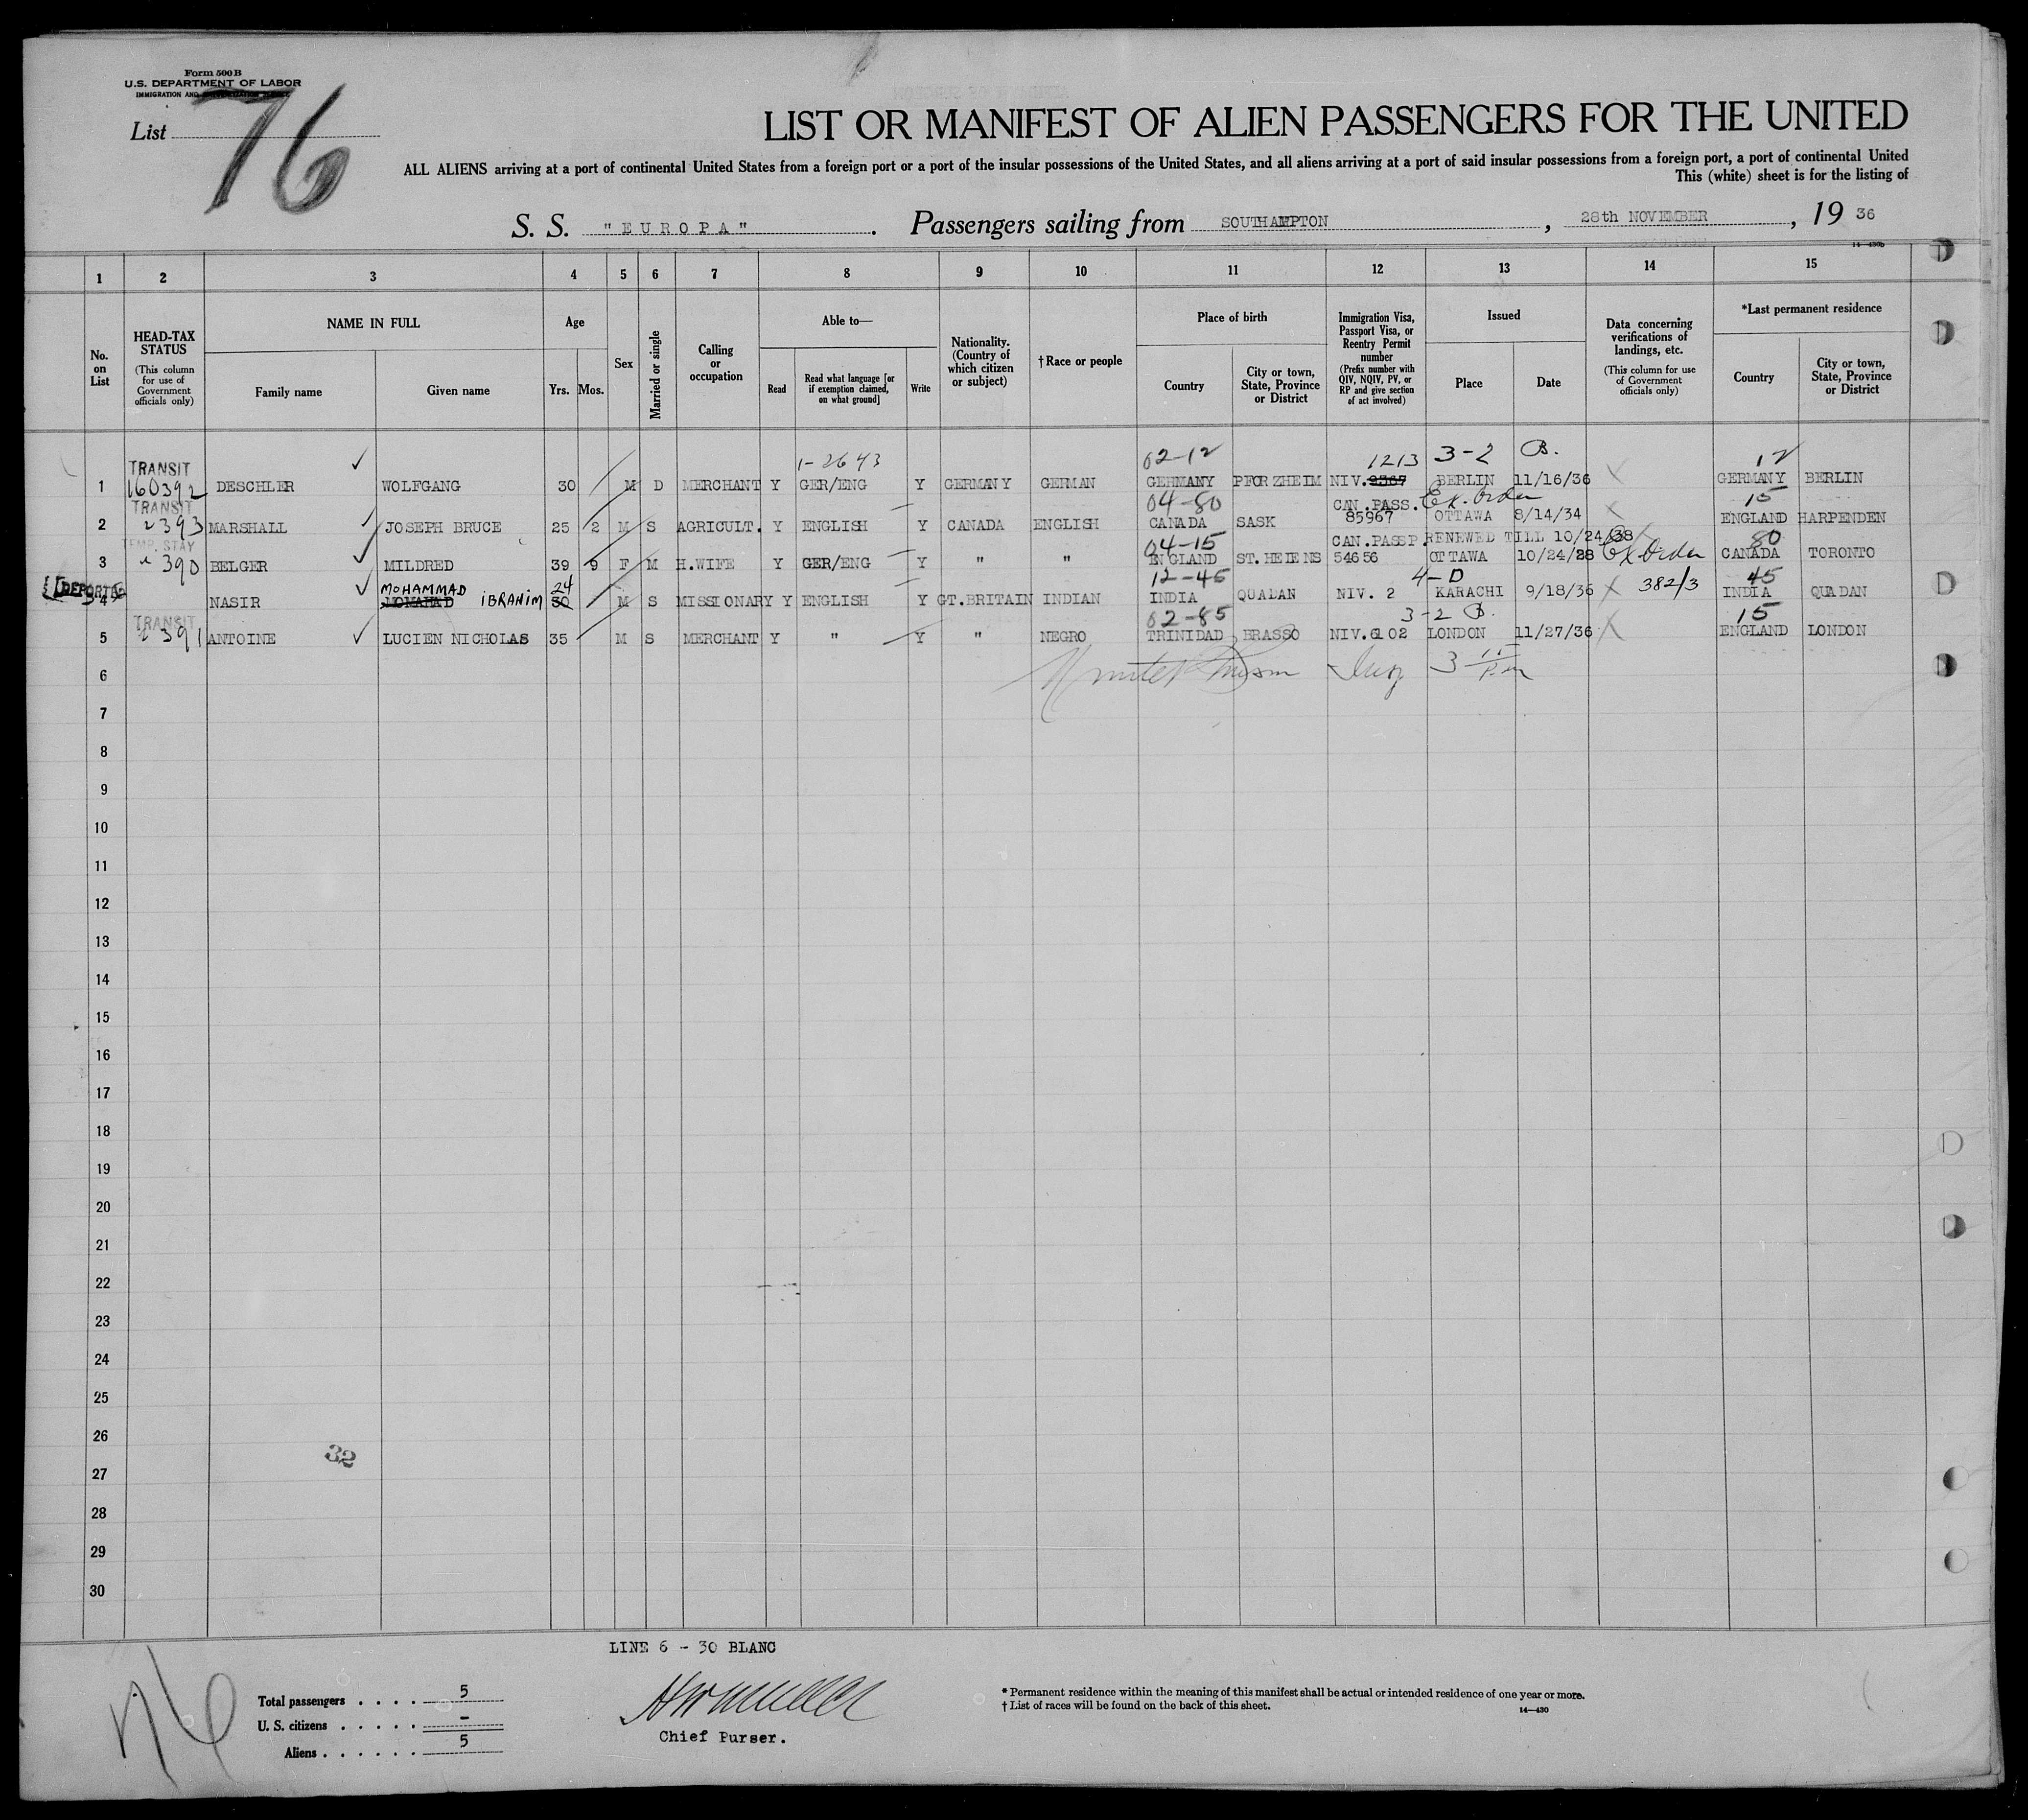 Form 500 B
U.S. DEPARTMENT OF LABOR
IMMIGRATION AND NATURALIZATION SERVICE
List 76
LIST OR MANIFEST OF ALIEN PASSENGERS FOR THE UNITED
ALL ALIENS arriving at a port of continental United States from a foreign port or a port of the insular possessions of the United States, and all aliens arriving at a port of said insular possessions from a foreign port, a port of continental United
This (white) sheet is for the listing of
S. S. "EUROPA". Passengers sailing from SOUTHAMPTON, 28th NOVEMBER, 19 36
14—430b
1 2 3 4 5 6 7 8 9 10 11 12 13 14 15
No. on List
HEAD-TAX STATUS (This column for use of Government officials only)
NAME IN FULL
Family name
Given name
Age
Yrs. Mos.
Sex
Married or single
Calling or occupation
Able to—
Read
Read what language [or if exemption claimed, on what ground]
Write
Nationality. (Country of which citizen or subject)
†Race or people
Place of birth
Country
City or town, State, Province or District
Immigration Visa, Passport Visa, or Reentry Permit number (Prefix number with QIV, NQIV, PV, or RP and give section of act involved)
Issued
Place
Date
Data concerning verifications of landings, etc. (This column for use of Government officials only)
*Last permanent residence
Country
City or town, State, Province or District
1-2643 02-12 1213 3-2 B. 12
1 TRANSIT 160392 DESCHLER WOLFGANG 30 M D MERCHANT Y GER/ENG Y GERMANY GERMAN GERMANY PFORZHEIM NIV. 9367 BERLIN 11/16/36 GERMANY BERLIN
04-80 CAN.PASS. Ex. Order 15
2 TRANSIT 393 MARSHALL JOSEPH BRUCE 25 2 M S AGRICULT. Y ENGLISH Y CANADA ENGLISH CANADA SASK 85967 OTTAWA 8/14/34 ENGLAND HARPENDEN
04-15 CAN.PASSP. RENEWED TILL 10/24/38 80
3 TEMP. STAY 390 BELGER MILDRED 39 9 F M H.WIFE Y GER/ENG Y " " ENGLAND ST.HELENS 54656 OTTAWA 10/24/28 Ex Order CANADA TORONTO
MOHAMMAD 24 12-45 4-D 45
4 DEPORTED NASIR MOMAHAD IBRAHIM 30 M S MISSIONARY Y ENGLISH Y GT.BRITAIN INDIAN INDIA QUADAN NIV. 2 KARACHI 9/18/36 382/3 INDIA QUADAN
02-85 3-2 B. 15
5 TRANSIT 391 ANTOINE LUCIEN NICHOLAS 35 M S MERCHANT Y " Y " NEGRO TRINIDAD BRASSO NIV.6102 LONDON 11/27/36 ENGLAND LONDON
6
7
8
9
10
11
12
13
14
15
16
17
18
19
20
21
22
23
24
25
26
32
27
28
29
30
LINE 6 - 30 BLANC
76
Total passengers . . . . 5
U. S. citizens . . . . . -
Aliens . . . . . . 5
Chief Purser.
* Permanent residence within the meaning of this manifest shall be actual or intended residence of one year or more.
† List of races will be found on the back of this sheet.
14—430